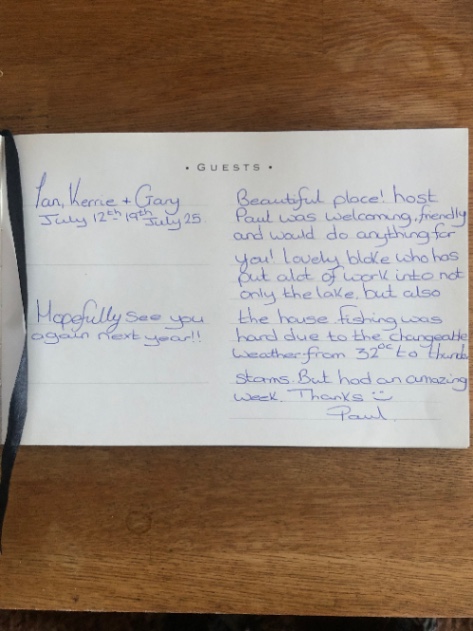 • GUESTS •
Ian, Kerrie + Gary
July 12th - 19th July 25
Hopefully see you
again next year!!
Beautiful place! host
Paul was welcoming, friendly
and would do anything for
you! Lovely bloke who has
put alot of work into not
only the lake, but also
the house. Fishing was
hard due to the changeable
weather from 32°c to thunde
storms. But had an amazing
week. Thanks ☺
Paul.